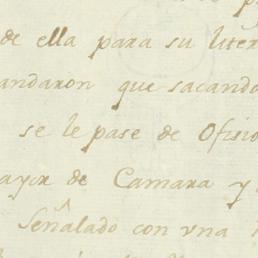 de ella para su liter
andaron que sacando
se le pase de Ofisio
ayor de Camara y
Señalado con vna